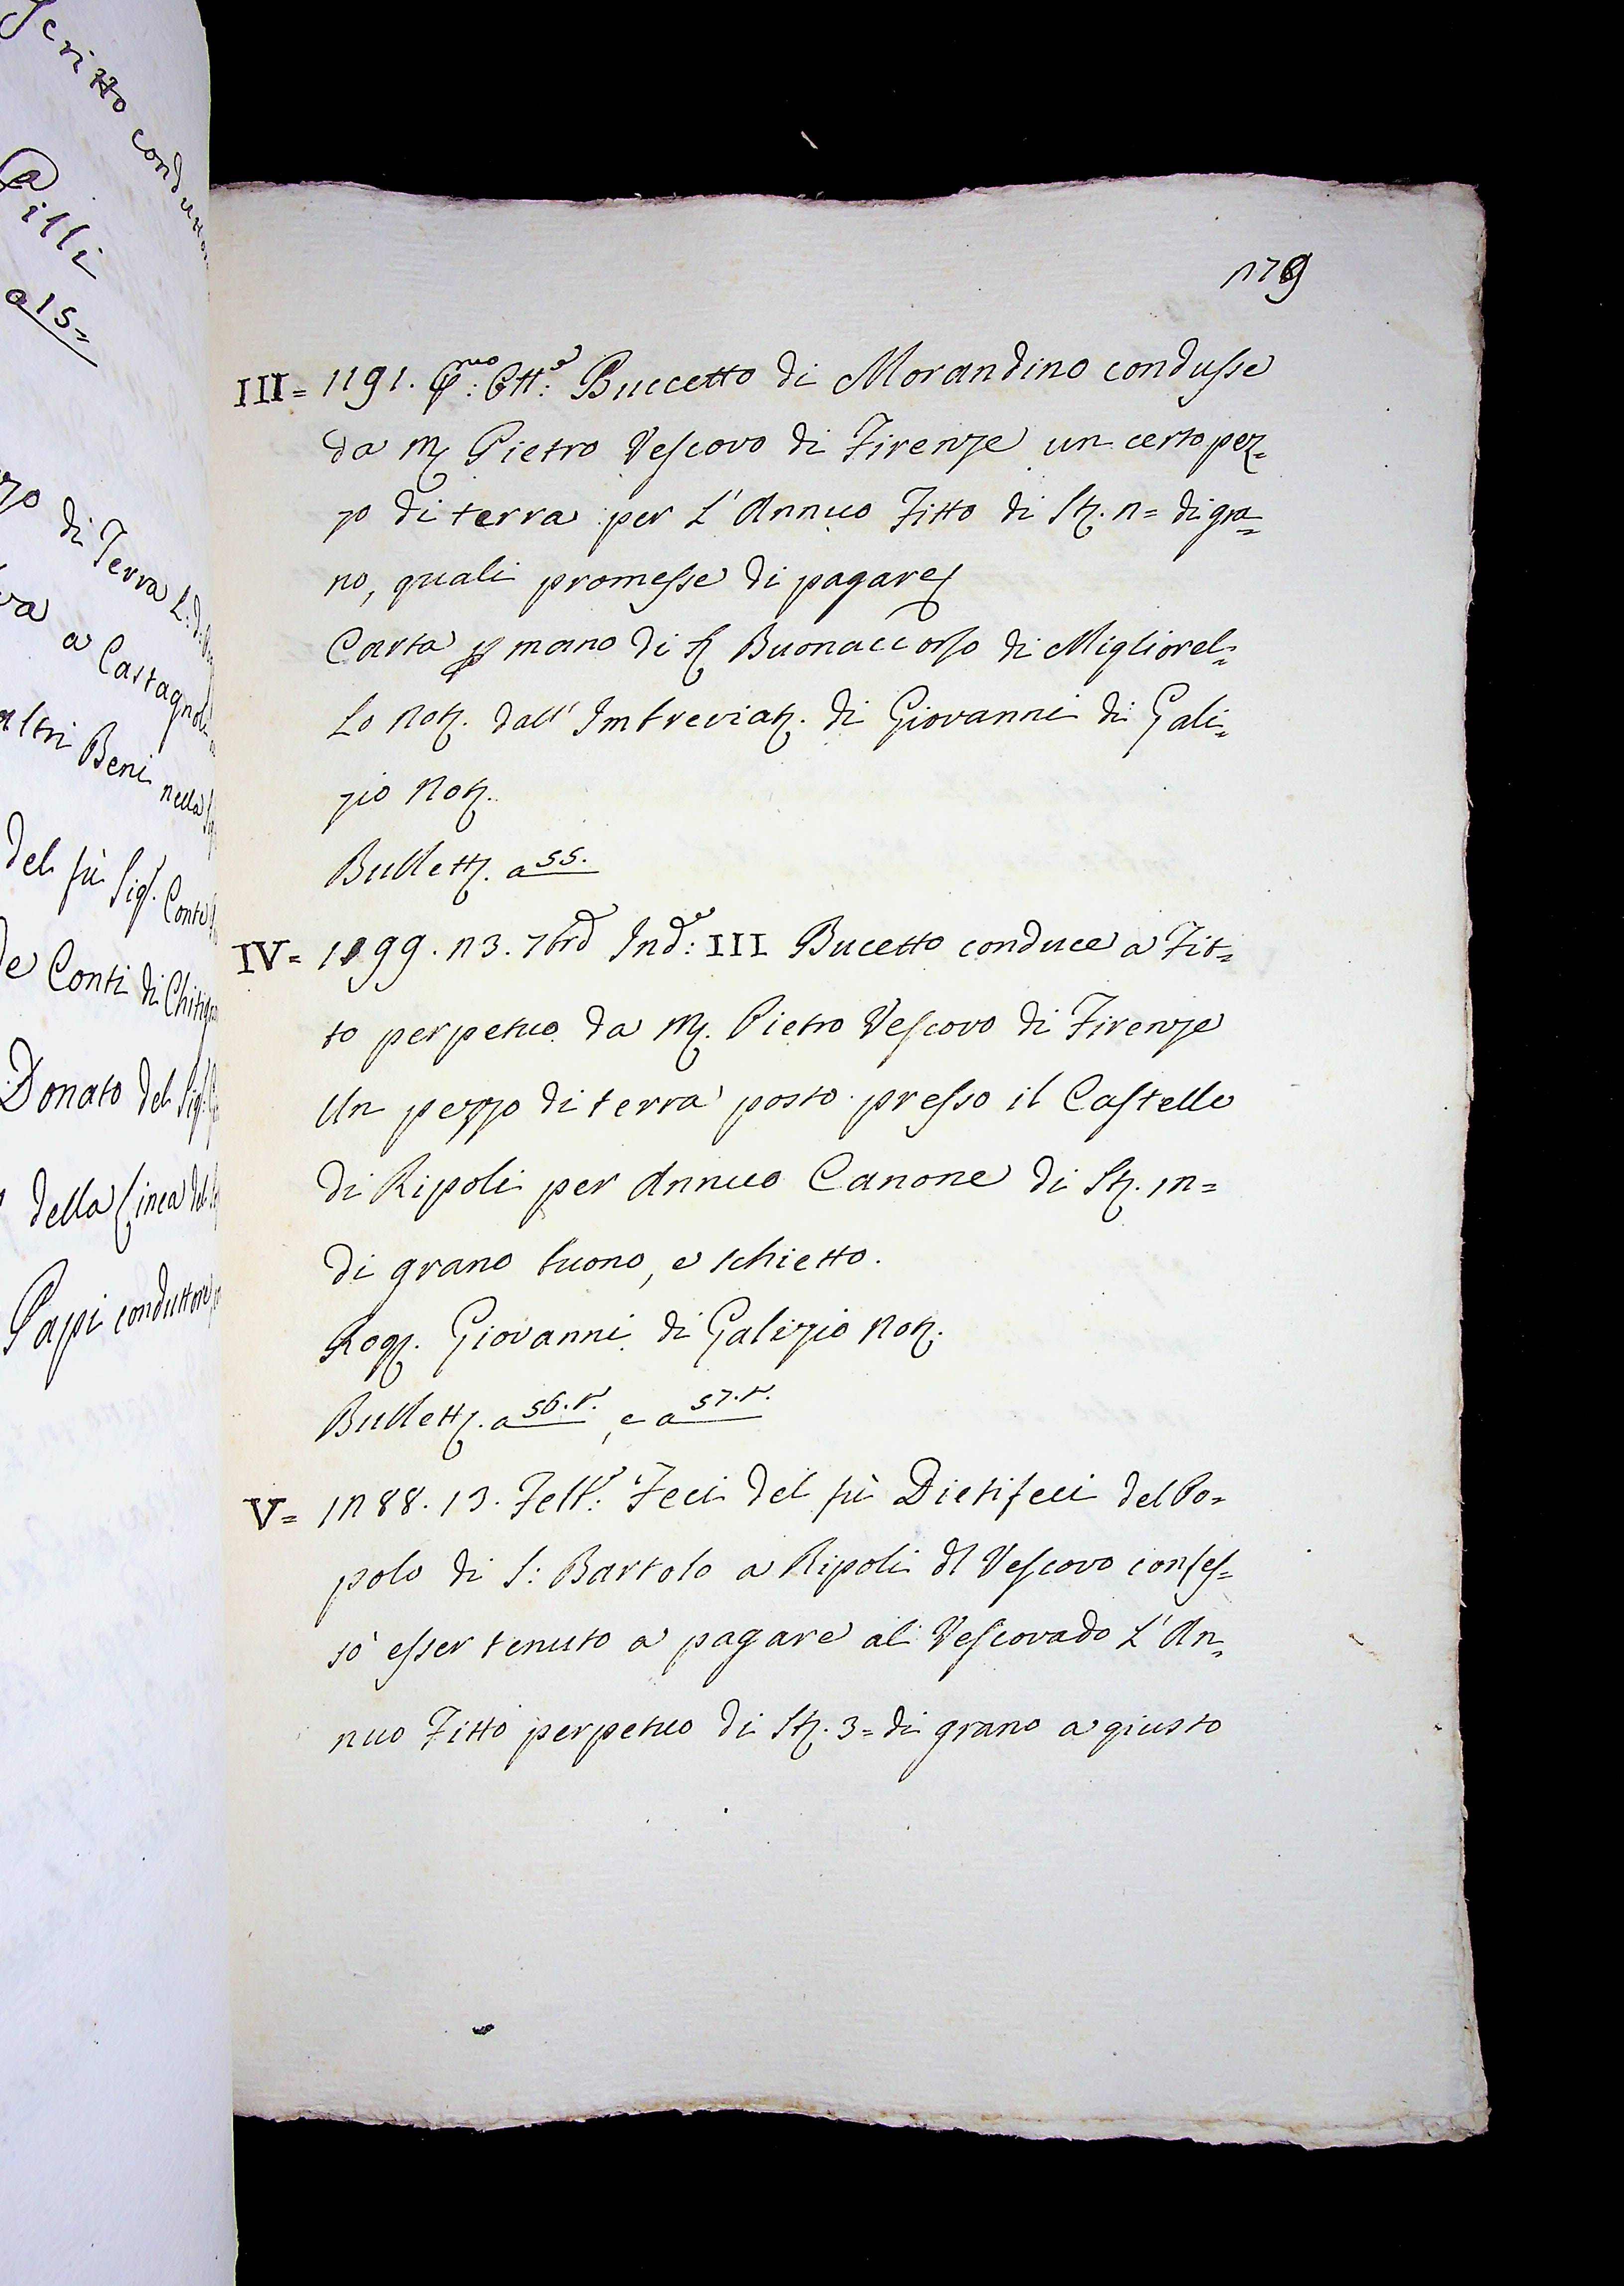 Scritto condutto
Pilli
a 15=
zo di Terra L: d:
va a Castagnol
altri Beni nella
del fù Sig.r Conte
de Conti di Chitign
Donato del Sig.
della Linea del
Papi conduttore
179
III= 1191. Pmo: Ott:e Buccetto di Morandino condusse
da M. Pietro Vescovo di Firenze un certo pez=
zo di terra per L' Annuo Fitto di St. 2= di gra=
no, quali promesse di pagare
Carta p mano di S. Buonaccorso di Migliorel=
Lo Not. dall' Imbreviat. di Giovanni di Gali=
zio Not.
Bullett. a 55.
IV= 1299. 23. 7bre Ind:e III Bucetto conduce a Fit=
to perpetuo da M. Pietro Vescovo di Firenze
Un pezzo di terra posto presso il Castello
di Ripoli per Annuo Canone di St. 12=
di grano buono, e schietto.
Rog. Giovanni di Galizio Not.
Bullett. a 56.t., e a 57.t.
V= 1288. 13. Febb:o Feci del fù Dietifeci del Po=
polo di S: Bartolo a Ripoli dl Vescovo confes=
sò esser tenuto a pagare al Vescovado L' An=
nuo Fitto perpetuo di St. 3= di grano a giusto